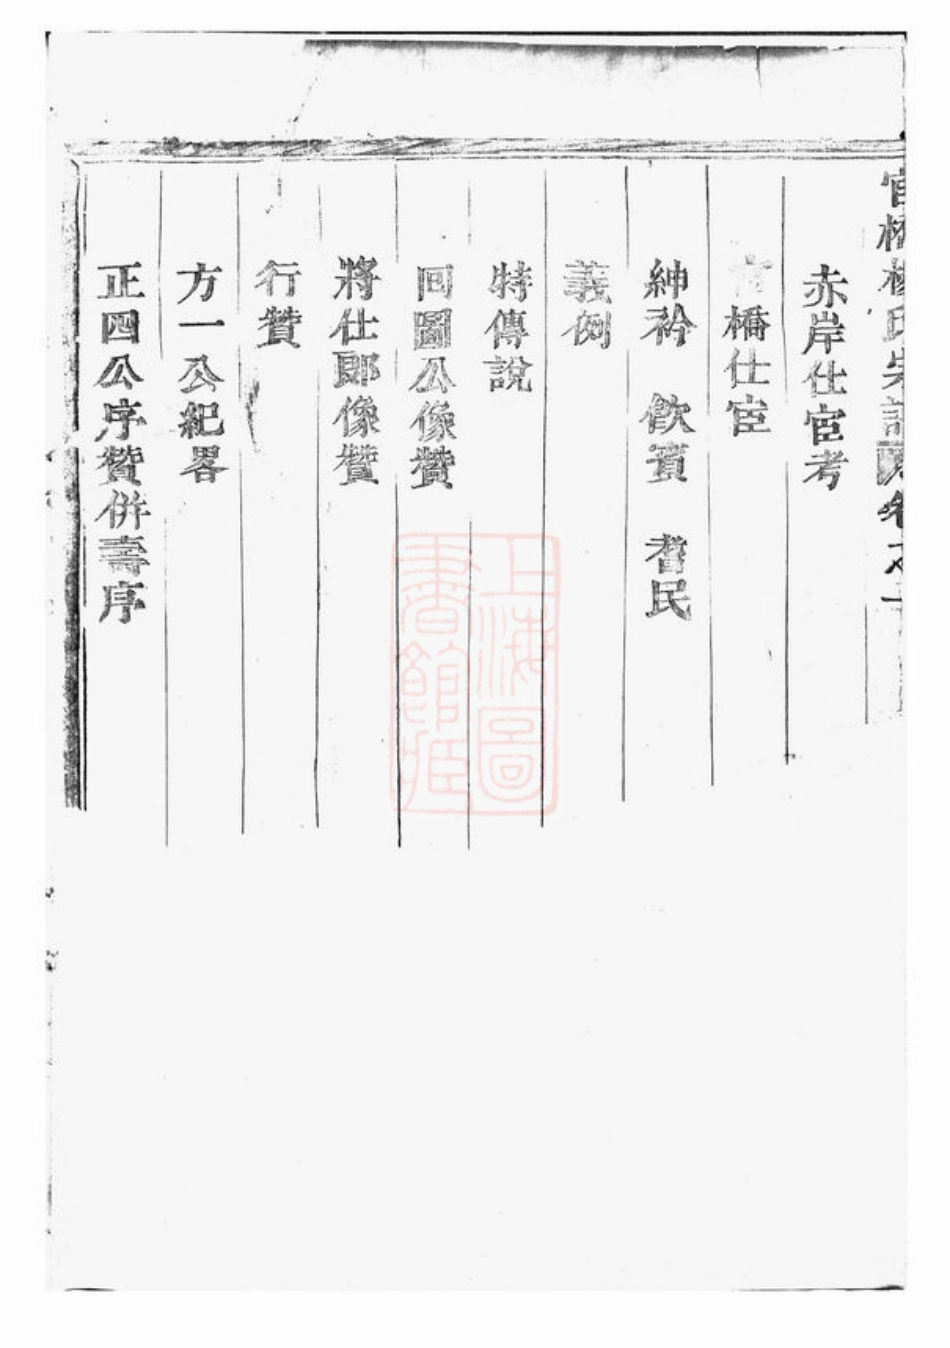 官橋楊氏宗譜卷之一
赤岸仕宦考
官橋仕宦
紳衿　飲賓　耆民
義例
特傳說
回圖公像贊
將仕郎像贊
行贊
方一公紀畧
正四公序贊併壽序
上海圖書館藏